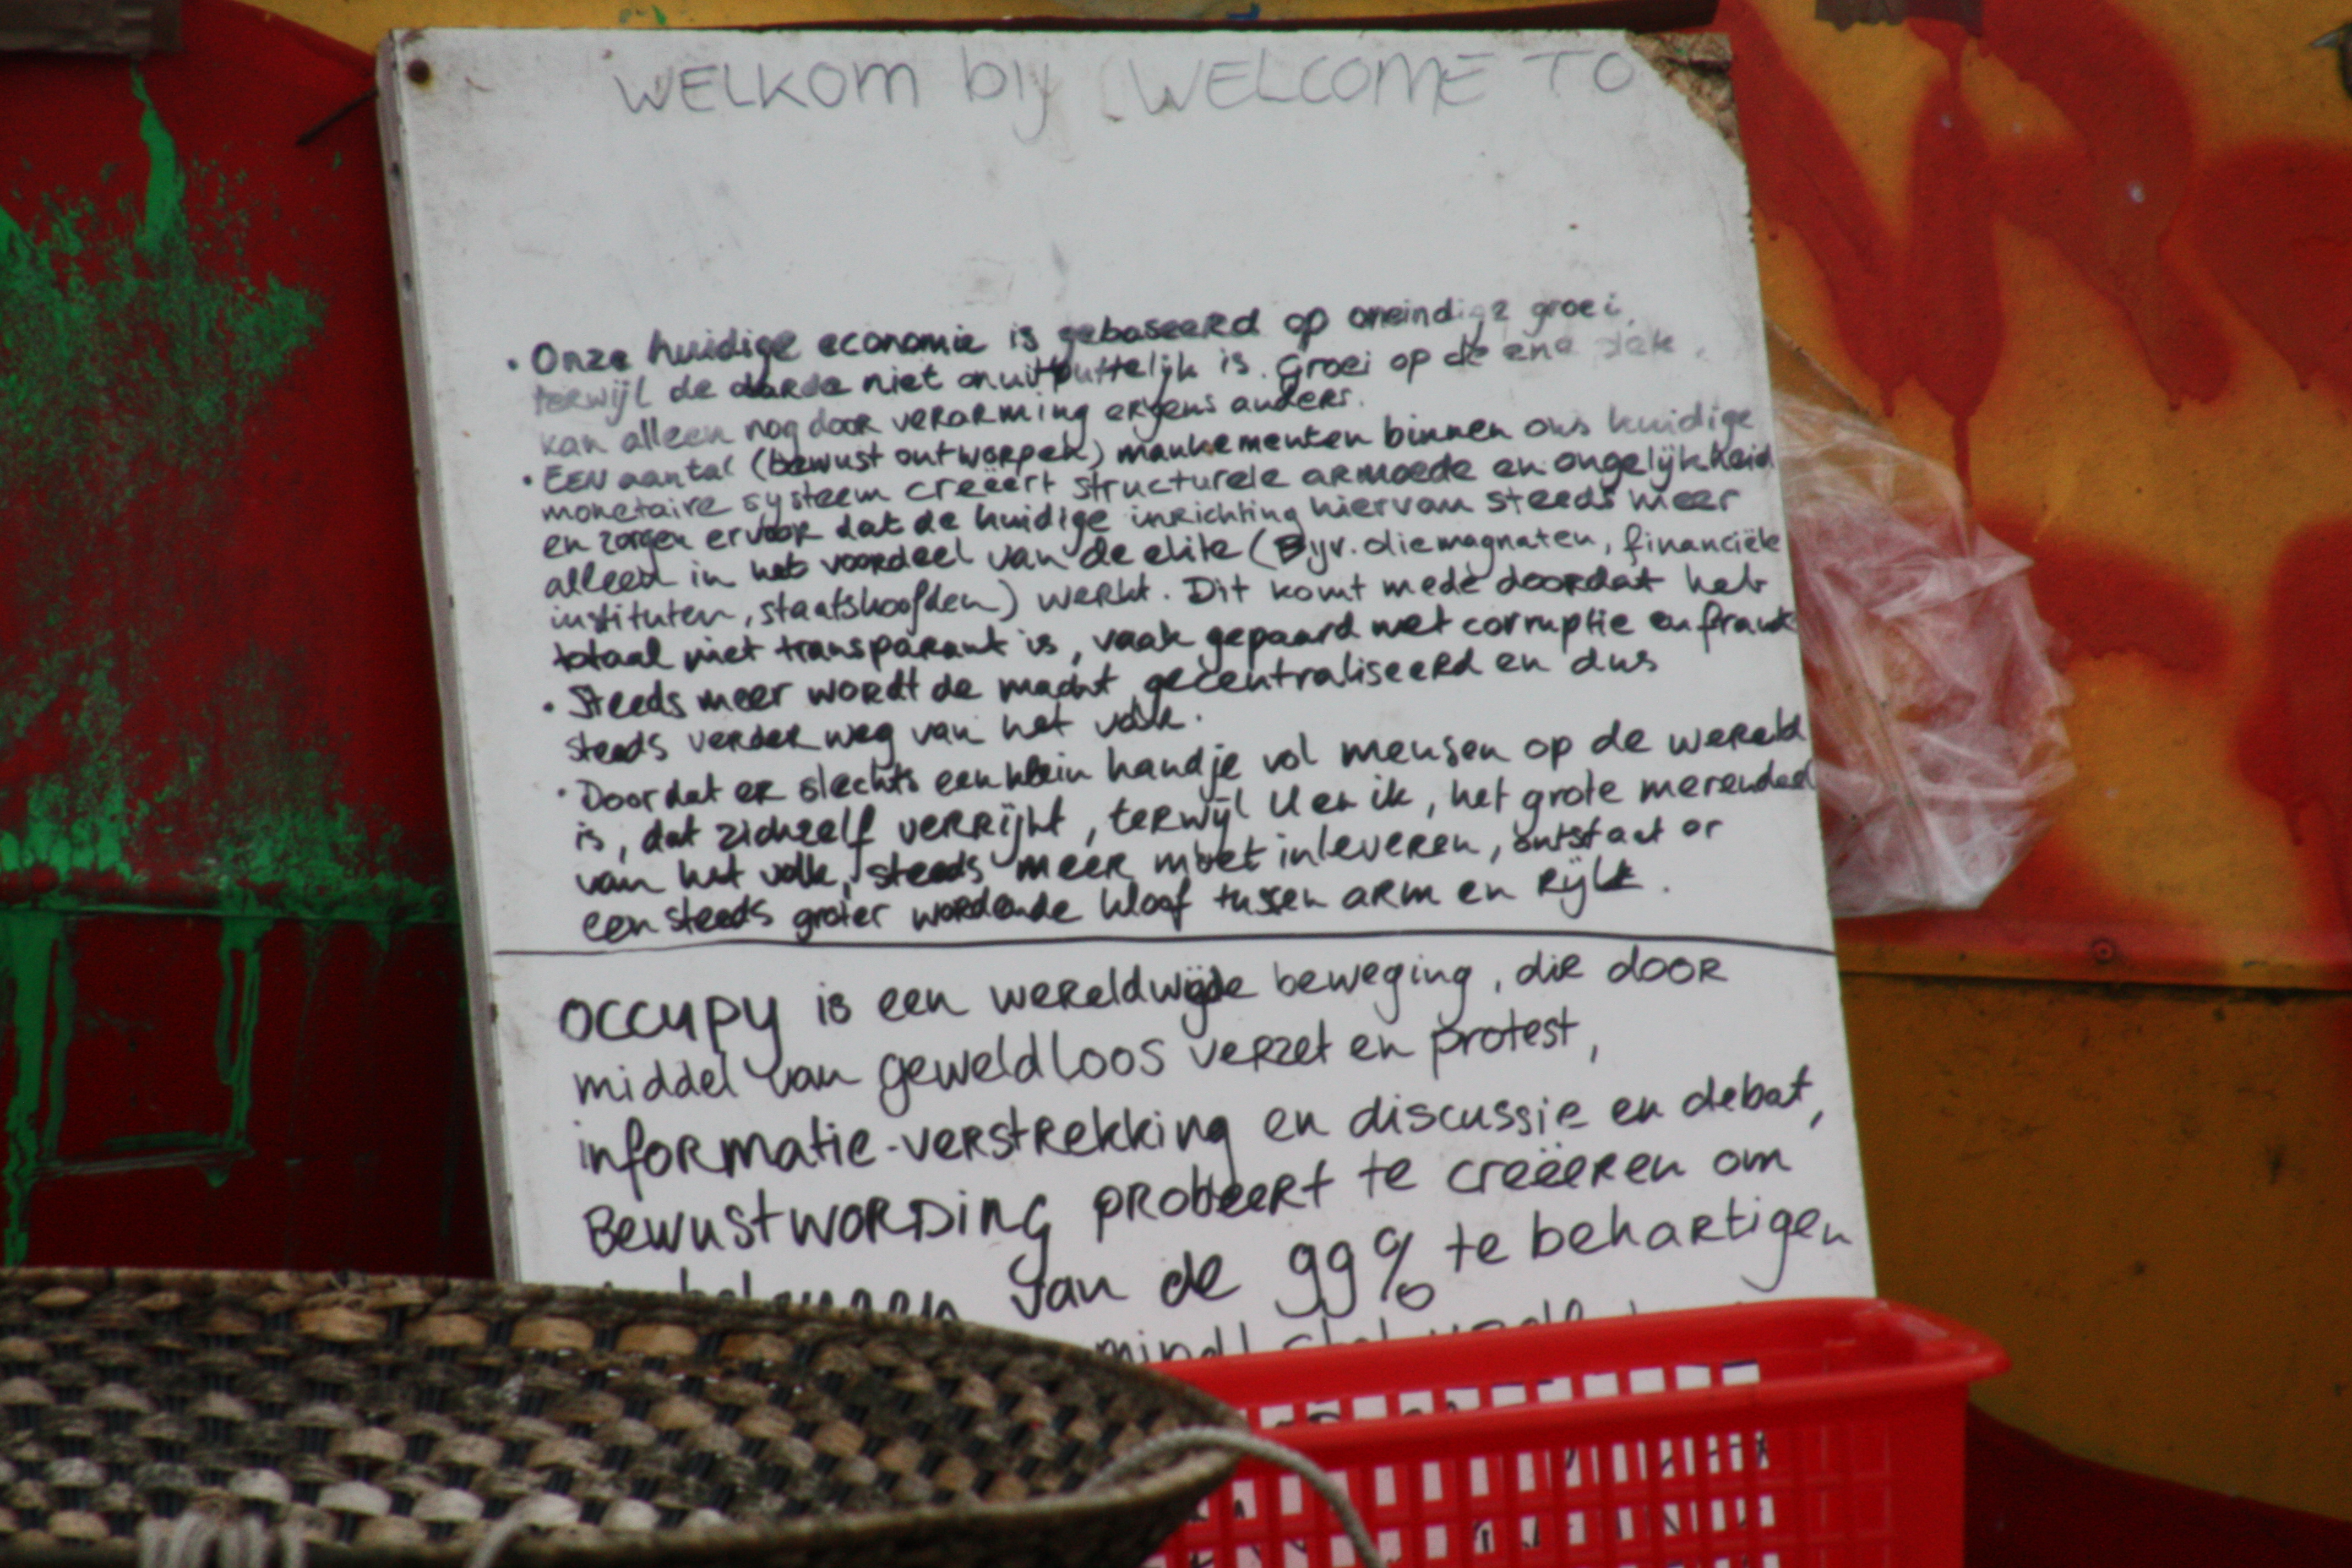 WELKOM bij WELCOME TO
• Onze huidige economie is gebaseerd op oneindige groei,
terwijl de aarde niet onuitputtelijk is. Groei op de ene plek,
kan alleen nog door verarming ergens anders.
• EEN aantal (bewust ontworpen) mankementen binnen ons huidige
monetaire systeem creëert structurele armoede en ongelijkheid
en zorgen ervoor dat de huidige inrichting hiervan steeds meer
alleen in het voordeel van de elite (Bijv. oliemagnaten, financiële
instituten, staatshoofden) werkt. Dit komt mede doordat het
totaal niet transparant is, vaak gepaard met corruptie en fraude
• Steeds meer wordt de macht gecentraliseerd en dus
steeds verder weg van het volk.
• Doordat er slechts een klein handje vol mensen op de wereld
is, dat zichzelf verrijkt, terwijl U en ik, het grote merendeel
van het volk, steeds meer moet inleveren, ontstaat er
een steeds groter wordende kloof tussen arm en rijk.
OCCUPY is een wereldwijde beweging, die door
middel van geweldloos verzet en protest,
informatie-verstrekking en discussie en debat,
Bewustwording probeert te creëeren om
belangen van de 99% te behartigen